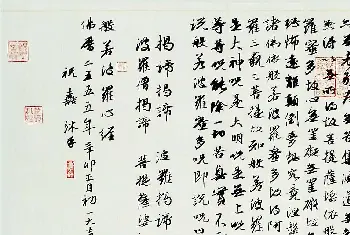 羅蜜多故心無罣礙無罣礙故
恐怖遠離顛倒夢想究竟涅槃
諸佛依般若波羅蜜多故得阿
羅三藐三菩提故知般若波羅
是大神咒是大明咒是無上咒
等等咒能除一切苦真實不
說般若波羅蜜多咒即說咒曰
揭諦揭諦 波羅揭諦
波羅僧揭諦 菩提薩婆
般若波羅心經
佛曆二五五五年辛卯正月初一
祝 沐手